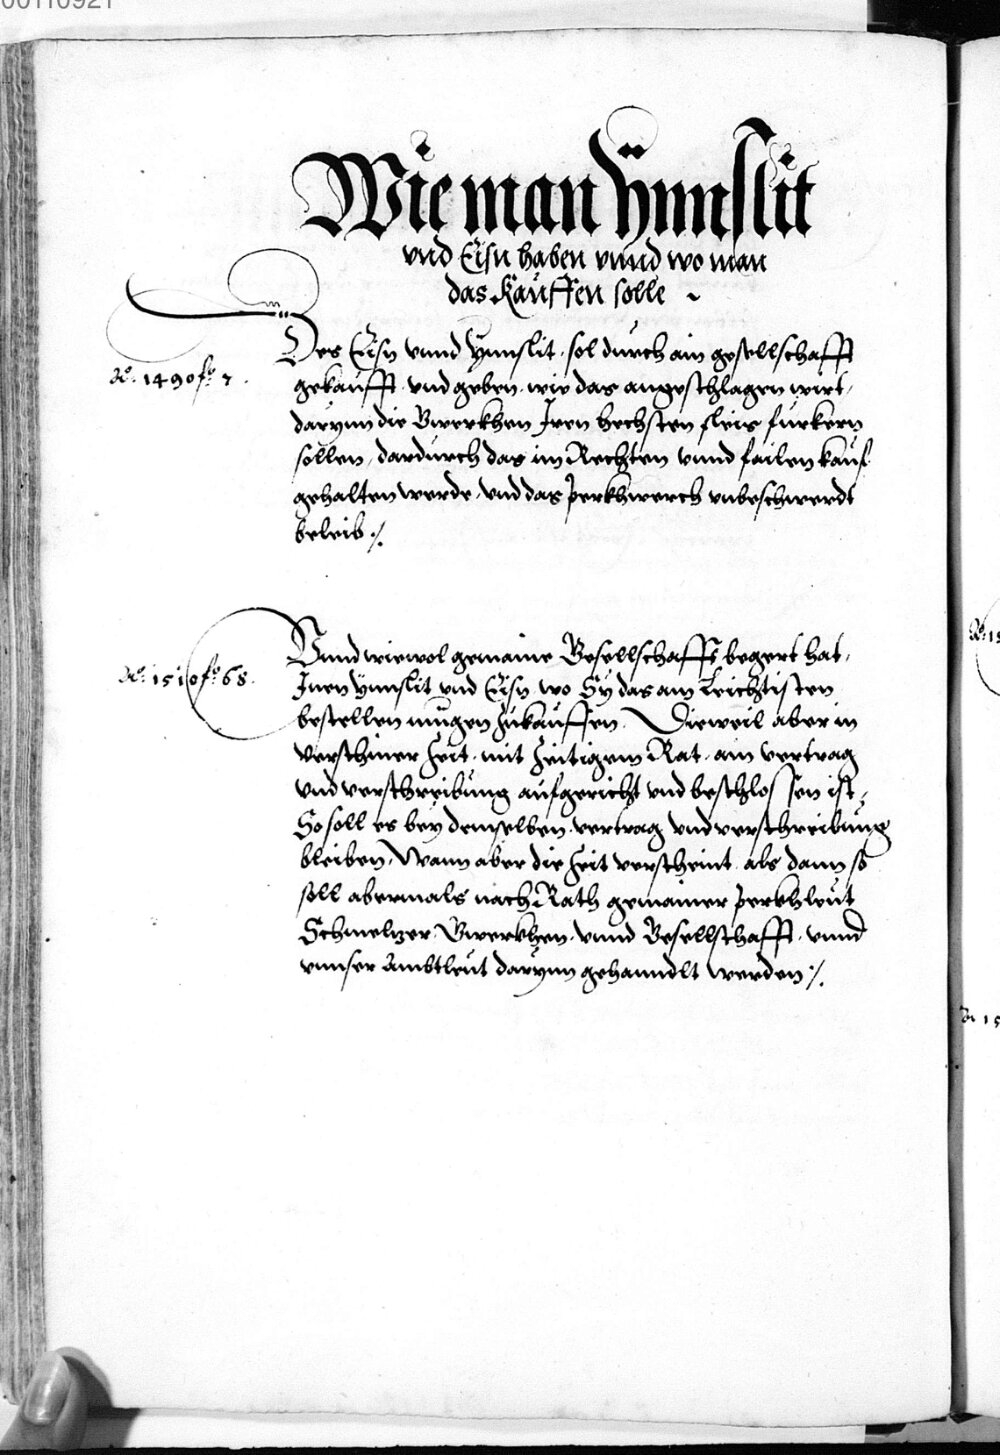 00110921
Wie man Ynnslit
vnd Eisn haben vnnd wo man
das Kauffen solle
Des Eisn vnnd Ynnslit, sol durch ain gesellschafft
Ao. 1490 fo. 7.
gekaufft, vnd geben, wie das angeschlagen wirt,
darynn die Gwerkhen Iren hechsten fleis furkern
sollen, dardurch das im Rechten vnnd failen kauf
gehalten werde, vnd das Perkhwerch vnbeschwerdt
beleib ./.
Vnnd wiewol gemaine Gesellschafft begert hat,
Ao. 1510 fo. 68.
Inen Ynnslit vnd Eisn, wo Sy das am Leichtisten
bestellen mugen zukauffen. Dieweil aber in
verschiner Zeit, mit zeitigem Rat, ain vertrag
vnd verschreibung aufgericht vnd beschlossen ist,
So soll es bey demselben vertrag vnd verschreibung
bleiben, Wann aber die Zeit verscheint, als dann so
soll abermals nach Rath gemainer Perkhleut
Schmeltzer, Gwerkhen, vnnd Gesellschafft, vnnd
vnnser Ambtleut darynn gehanndlt werden ./.